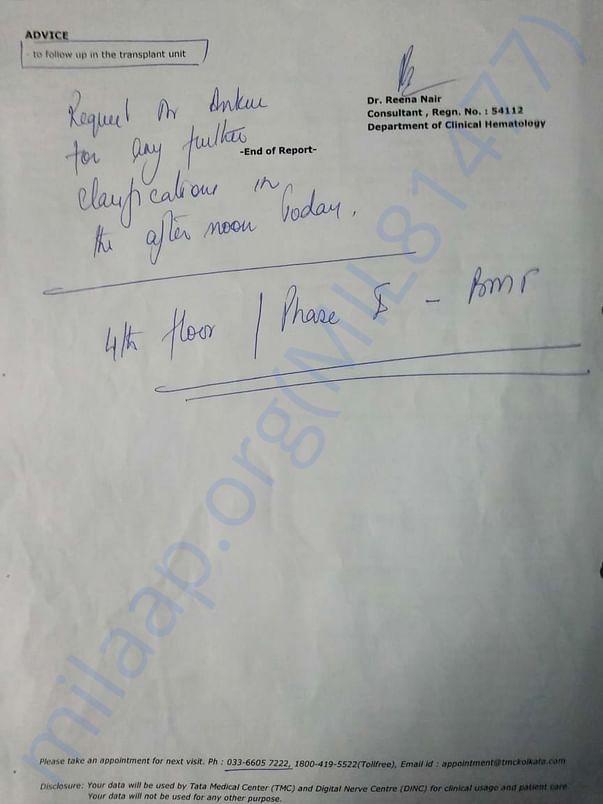 ADVICE
- to follow up in the transplant unit
Dr. Reena Nair
Consultant , Regn. No. : 54112
Department of Clinical Hematology
Request Dr Ankur
for any further
-End of Report-
clarifications in
the after noon Today.
4th floor | Phase - BMT
milaap.org(MIL814477)
Please take an appointment for next visit. Ph : 033-6605 7222, 1800-419-5522(Tollfree), Email id : appointment@tmckolkata.com
Disclosure: Your data will be used by Tata Medical Center (TMC) and Digital Nerve Centre (DINC) for clinical usage and patient care.
Your data will not be used for any other purpose.